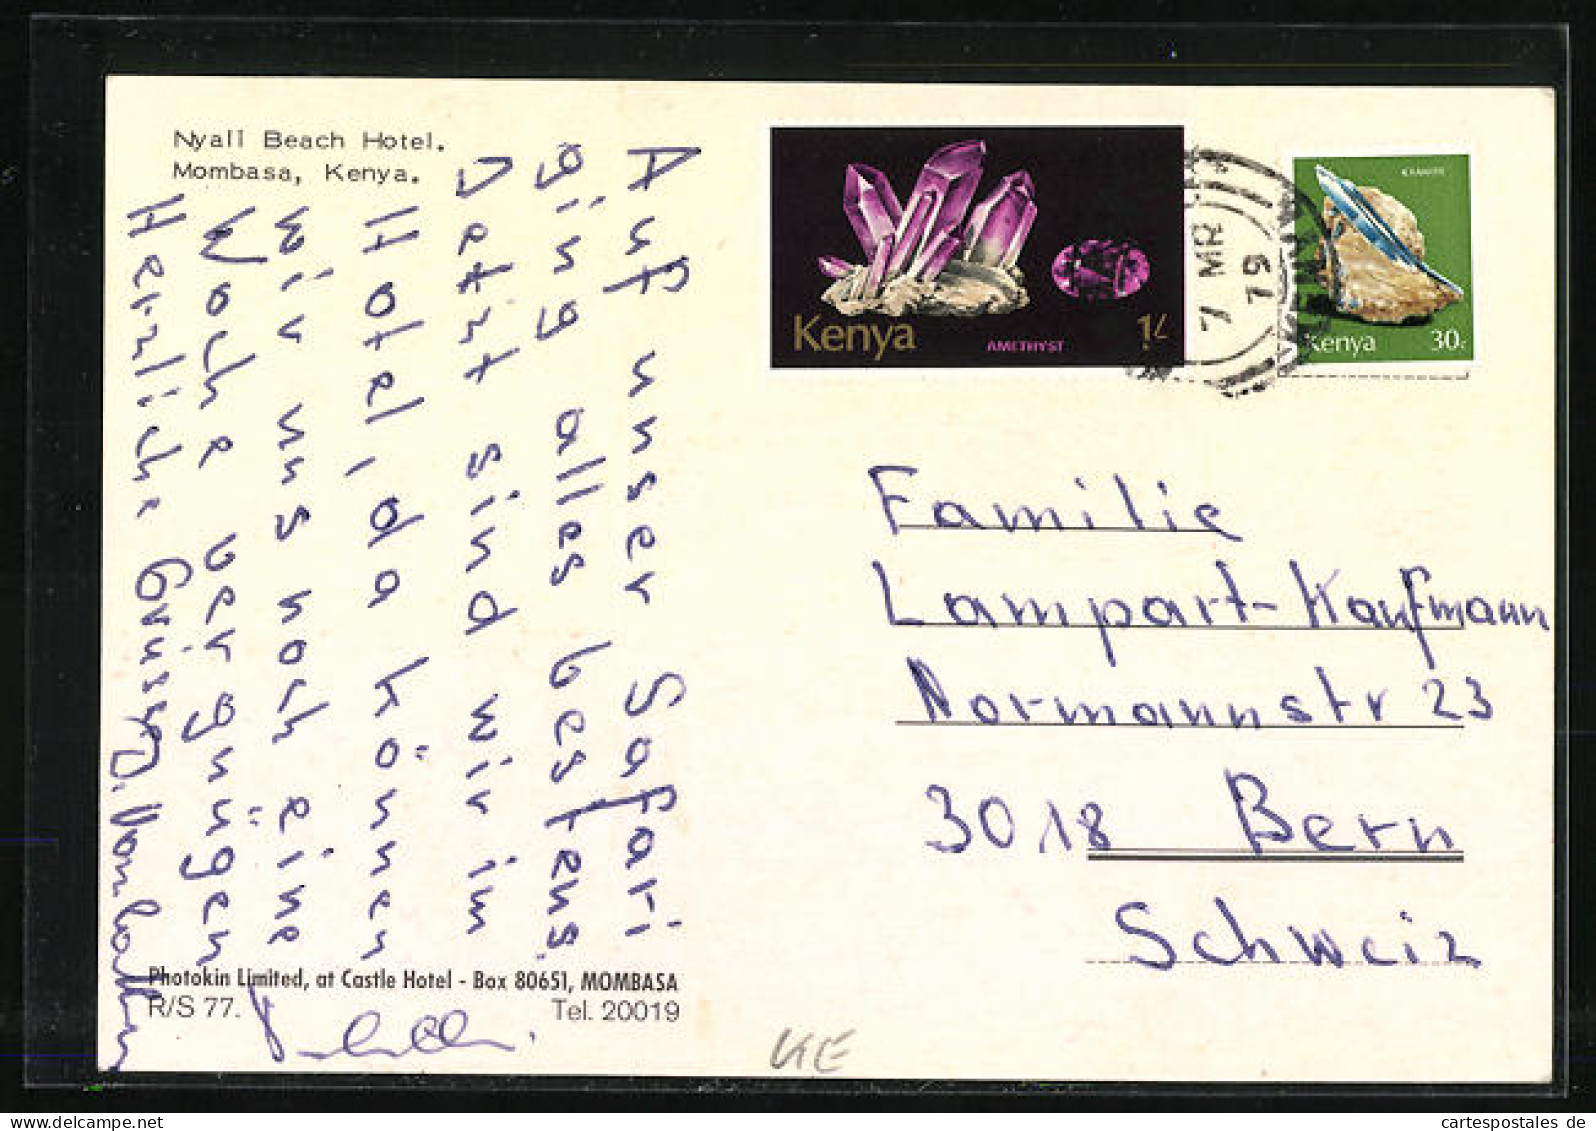 Nyali Beach Hotel.
Mombasa, Kenya.
Auf unser Safari
ging alles bestens.
Jetzt sind wir im
Hotel, da können
wir uns noch eine
Woche vergnügen
Herzliche Grüsse
Photokin Limited, at Castle Hotel - Box 80651, MOMBASA
R/S 77.
Tel. 20019
Kenya
AMETHYST
1/-
7 MR
79
KYANITE
Kenya
30c
Familie
Lampart-Kaufmann
Normannstr 23
3018 Bern
Schweiz
KE
cartespostales de